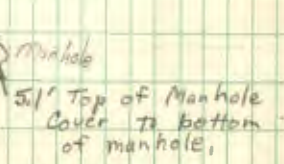 Manhole
5.1' Top of Manhole
Cover to bottom
of manhole,